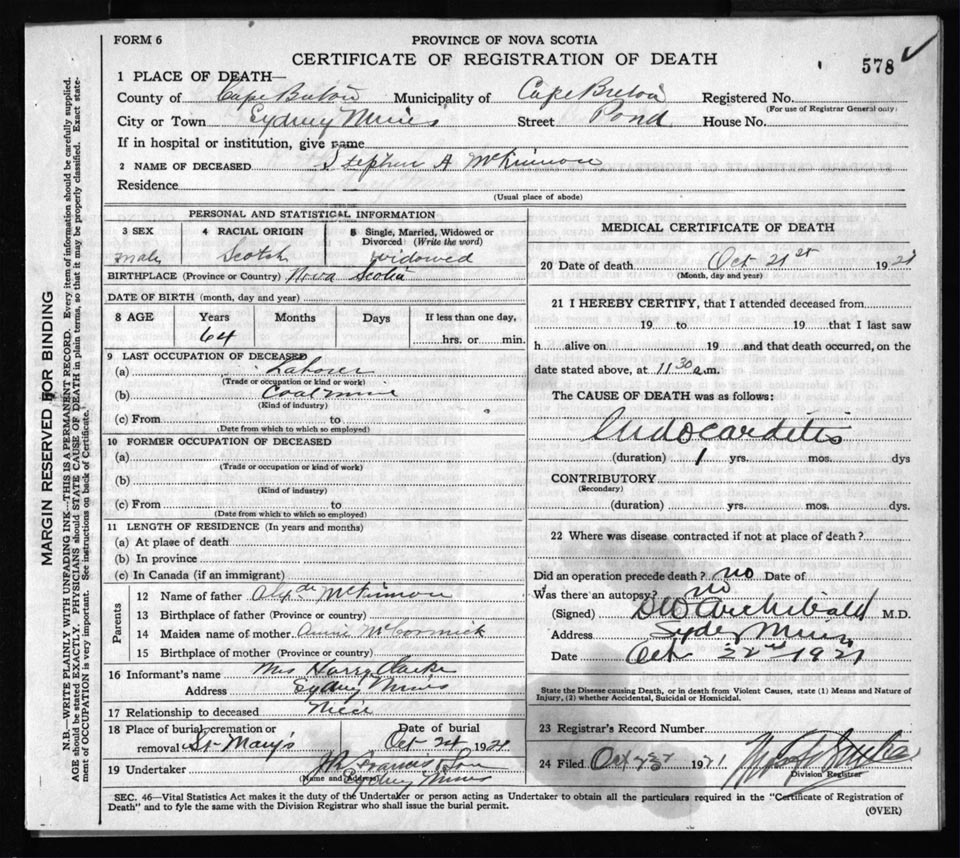 FORM 6
PROVINCE OF NOVA SCOTIA
CERTIFICATE OF REGISTRATION OF DEATH
578
1 PLACE OF DEATH—
County of Cape Breton Municipality of Cape Breton Registered No.
(For use of Registrar General only)
City or Town Sydney Mines Street Pond House No.
If in hospital or institution, give name
2 NAME OF DECEASED Stephen A McKinnon
Residence
(Usual place of abode)
PERSONAL AND STATISTICAL INFORMATION
3 SEX 4 RACIAL ORIGIN 5 Single, Married, Widowed or Divorced (Write the word)
male Scotch widowed
BIRTHPLACE (Province or Country) Nova Scotia
DATE OF BIRTH (month, day and year)
8 AGE Years Months Days If less than one day,
64 hrs. or min.
9 LAST OCCUPATION OF DECEASED
(a) Laborer
(Trade or occupation or kind or work)
(b) Coal mine
(Kind of industry)
(c) From to
(Date from which to which so employed)
10 FORMER OCCUPATION OF DECEASED
(a)
(Trade or occupation or kind of work)
(b)
(Kind of industry)
(c) From to
(Date from which to which so employed)
11 LENGTH OF RESIDENCE (In years and months)
(a) At place of death
(b) In province
(c) In Canada (if an immigrant)
Parents
12 Name of father Alexdr McKinnon
13 Birthplace of father (Province or country)
14 Maiden name of mother Annie McCormick
15 Birthplace of mother (Province or country)
16 Informant's name Mrs Harry
Address Sydney Mines
17 Relationship to deceased Niece
18 Place of burial, cremation or removal St. Mary's
Date of burial Oct 24 192
19 Undertaker
(Name and Address)
Sydney Mines
MEDICAL CERTIFICATE OF DEATH
20 Date of death Oct 21st 192
(Month, day and year)
21 I HEREBY CERTIFY, that I attended deceased from
19 to 19 that I last saw
h alive on 19 and that death occurred, on the
date stated above, at 11 30 a.m.
The CAUSE OF DEATH was as follows:
Endocarditis
(duration) 1 yrs. mos. dys
CONTRIBUTORY
(Secondary)
(duration) yrs. mos. dys.
22 Where was disease contracted if not at place of death?
Did an operation precede death? no Date of
Was there an autopsy? no
(Signed) Archibald M.D.
Address Sydney Mines
Date Oct 22nd 1921
State the Disease causing Death, or in death from Violent Causes, state (1) Means and Nature of
Injury, (2) whether Accidental, Suicidal or Homicidal.
23 Registrar's Record Number
24 Filed Oct 1921
Division Registrar
SEC. 46—Vital Statistics Act makes it the duty of the Undertaker or person acting as Undertaker to obtain all the particulars required in the "Certificate of Registration of
Death" and to fyle the same with the Division Registrar who shall issue the burial permit.
(OVER)
MARGIN RESERVED FOR BINDING
N.B.—WRITE PLAINLY WITH UNFADING INK—THIS IS A PERMANENT RECORD. Every item of information should be carefully supplied.
AGE should be stated EXACTLY. PHYSICIANS should STATE CAUSE OF DEATH in plain terms, so that it may be properly classified. Exact state-
ment of OCCUPATION is very important. See instructions on back of Certificate.